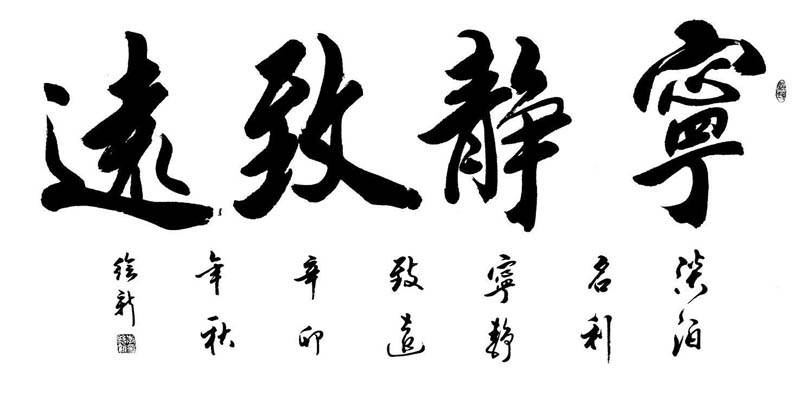 寧靜致遠
淡泊
名利
寧靜
致遠
辛卯
年秋
徐新